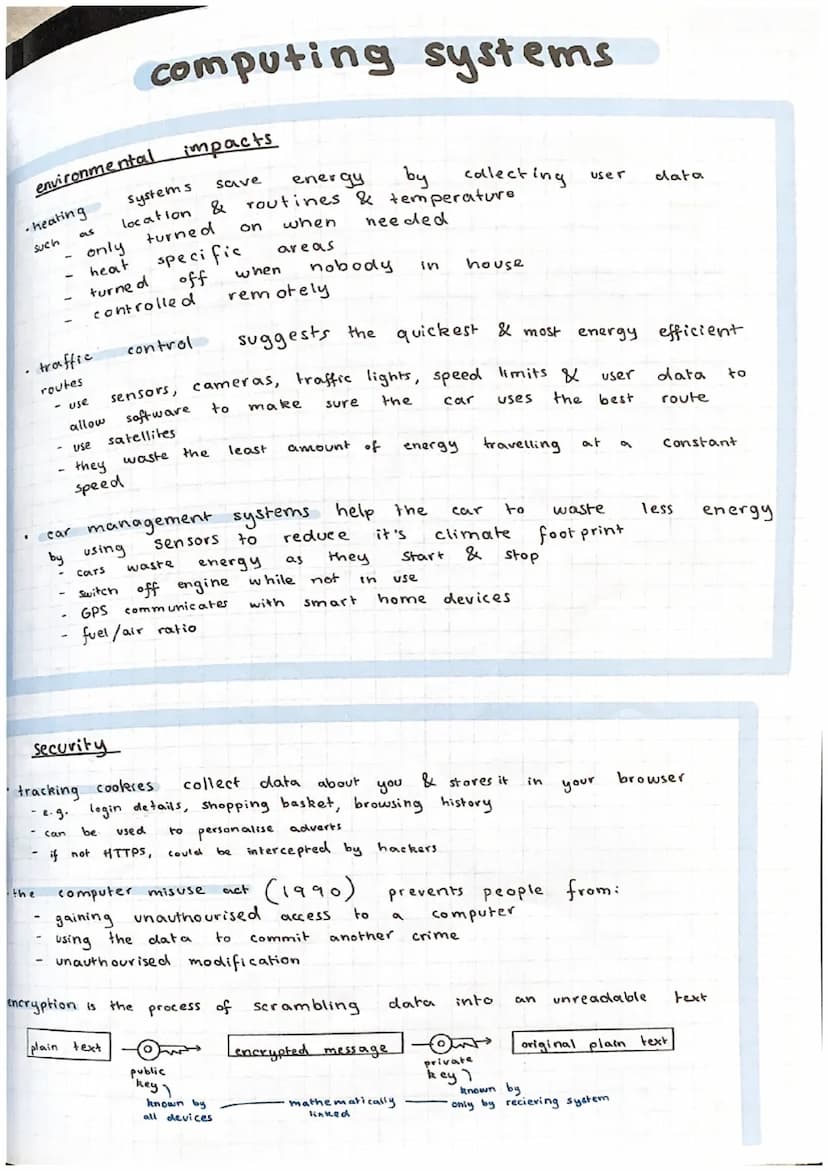 computing systems
environmental impacts
· heating systems save energy by collecting user data
such as location & routines & temperature
- only turned on when needed
- heat specific areas
- turned off when nobody in house
- controlled remotely
· traffic control suggests the quickest & most energy efficient
routes
- use sensors, cameras, traffic lights, speed limits & user data to
allow software to make sure the car uses the best route
- use satellites
- they waste the least amount of energy travelling at a constant
speed
· car management systems help the car to waste less energy
by using sensors to reduce it's climate footprint
- cars waste energy as they start & stop
- switch off engine while not in use
- GPS communicates with smart home devices
- fuel/air ratio
security
· tracking cookies collect data about you & stores it in your browser
- e.g. login details, shopping basket, browsing history
- can be used to personalise adverts
- if not HTTPS, could be intercepted by hackers
· the computer misuse act (1990) prevents people from:
- gaining unauthourised access to a computer
- using the data to commit another crime
- unauthourised modification
encryption is the process of scrambling data into an unreadable text
plain text encrypted message original plain text
public key private key
known by all devices mathematically linked known by only by recieving system